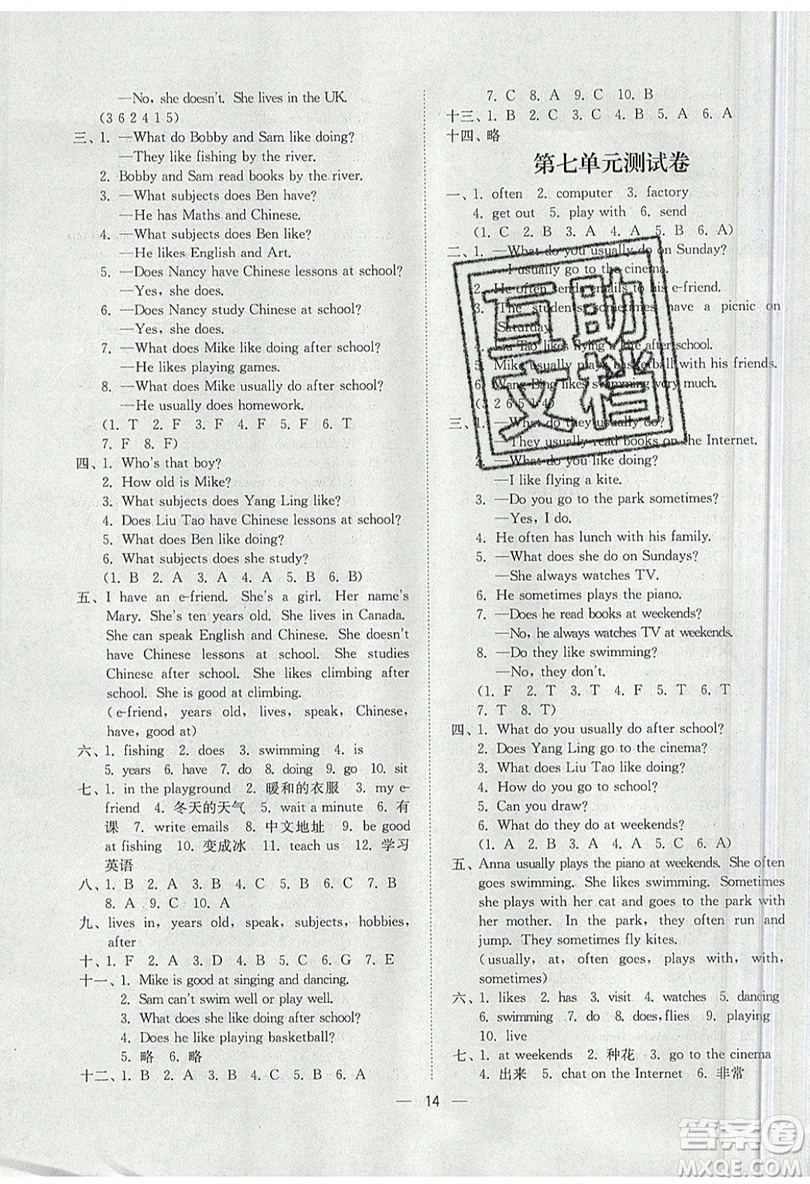 —No, she doesn't. She lives in the UK.
(3 6 2 4 1 5)
三、1. —What do Bobby and Sam like doing?
—They like fishing by the river.
2. Bobby and Sam read books by the river.
3. —What subjects does Ben have?
—He has Maths and Chinese.
4. —What subjects does Ben like?
—He likes English and Art.
5. —Does Nancy have Chinese lessons at school?
—Yes, she does.
6. —Does Nancy study Chinese at school?
—Yes, she does.
7. —What does Mike like doing after school?
—He likes playing games.
8. —What does Mike usually do after school?
—He usually does homework.
(1. T 2. F 3. F 4. F 5. F 6. T
7. F 8. F)
四、1. Who's that boy?
2. How old is Mike?
3. What subjects does Yang Ling like?
4. Does Liu Tao have Chinese lessons at school?
5. What does Ben like doing?
6. What subjects does she study?
(1. B 2. A 3. A 4. A 5. B 6. B)
五、I have an e-friend. She's a girl. Her name's
Mary. She's ten years old. She lives in Canada.
She can speak English and Chinese. She doesn't
have Chinese lessons at school. She studies
Chinese after school. She likes climbing after
school. She is good at climbing.
(e-friend, years old, lives, speak, Chinese,
have, good at)
六、1. fishing 2. does 3. swimming 4. is
5. years 6. have 7. do 8. doing 9. go 10. sit
七、1. in the playground 2. 暖和的衣服 3. my e-
friend 4. 冬天的天气 5. wait a minute 6. 有
课 7. write emails 8. 中文地址 9. be good
at fishing 10. 变成冰 11. teach us 12. 学习
英语
八、1. B 2. A 3. B 4. C 5. B 6. B 7. B
8. A 9. C 10. A
九、lives in, years old, speak, subjects, hobbies,
after
十、1. F 2. A 3. D 4. B 5. C 6. G 7. E
十一、1. Mike is good at singing and dancing.
2. Sam can't swim well or play well.
3. What does she like doing after school?
4. Does he like playing basketball?
5. 略 6. 略
十二、1. B 2. A 3. C 4. B 5. C 6. A
7. C 8. A 9. C 10. B
十三、1. B 2. C 3. A 4. B 5. A 6. A
十四、略
第七单元测试卷
一、1. often 2. computer 3. factory
4. get out 5. play with 6. send
(1. C 2. B 3. A 4. A 5. B 6. C)
二、1. —What do you usually do on Sunday?
—I usually go to the cinema.
2. He often sends emails to his e-friend.
3. The students sometimes have a picnic on
Saturday.
4. Liu Tao likes flying a kite after school.
5. Mike usually plays basketball with his friends.
6. Wang Bing likes swimming very much.
(3 2 6 5 1 4)
三、1. —What do they usually do?
—They usually read books on the Internet.
2. —What do you like doing?
—I like flying a kite.
3. —Do you go to the park sometimes?
—Yes, I do.
4. He often has lunch with his family.
5. —What does she do on Sundays?
—She always watches TV.
6. He sometimes plays the piano.
7. —Does he read books at weekends?
—No, he always watches TV at weekends.
8. —Do they like swimming?
—No, they don't.
(1. F 2. T 3. T 4. F 5. F 6. T
7. T 8. T)
四、1. What do you usually do after school?
2. Does Yang Ling go to the cinema?
3. What does Liu Tao like doing?
4. How do you go to school?
5. Can you draw?
6. What do they do at weekends?
(1. A 2. B 3. B 4. C 5. C 6. A)
五、Anna usually plays the piano at weekends. She often
goes swimming. She likes swimming. Sometimes
she plays with her cat and goes to the park with
her mother. In the park, they often run and
jump. They sometimes fly kites.
(usually, at, often, goes, likes, with, with,
sometimes)
六、1. likes 2. has 3. visit 4. watches 5. dancing
6. swimming 7. do 8. does, flies 9. playing
10. live
七、1. at weekends 2. 种花 3. go to the cinema
4. 出来 5. chat on the Internet 6. 非常
— 14 —
互助
文档
答案圈
MXQE.COM